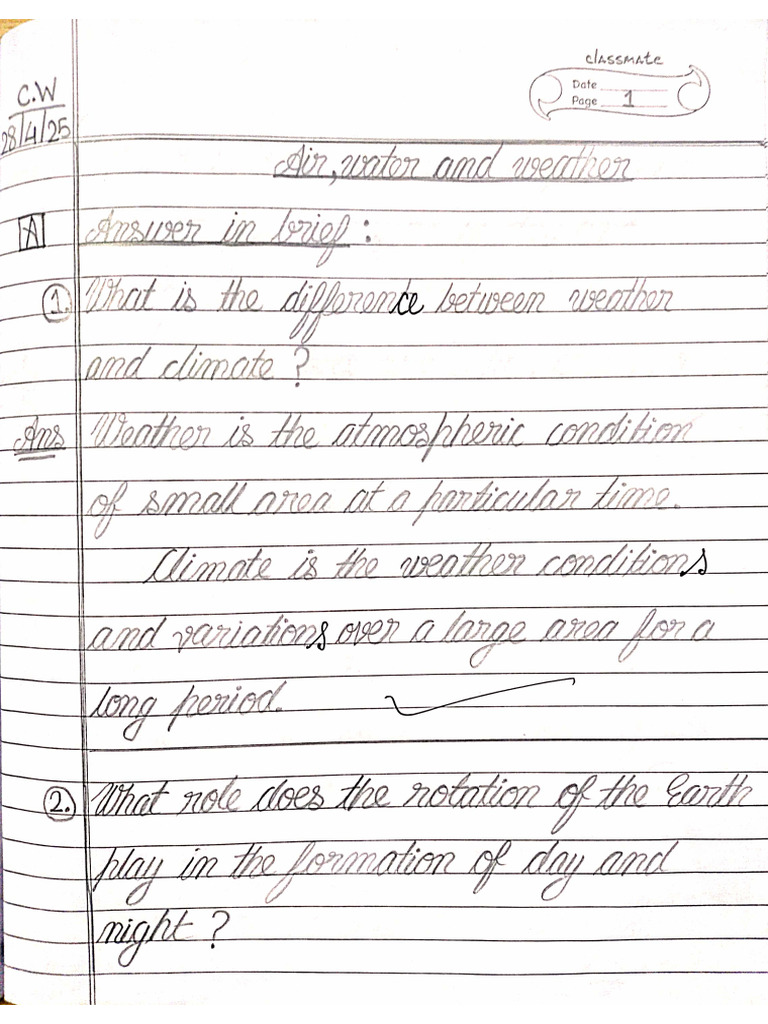 classmate
C.W
Date
Page 1
28/4/25
Air, water and weather
A Answer in brief :
1. What is the difference between weather
and climate ?
Ans Weather is the atmospheric condition
of small area at a particular time.
Climate is the weather conditions
and variations over a large area for a
long period.
2. What role does the rotation of the Earth
play in the formation of day and
night ?